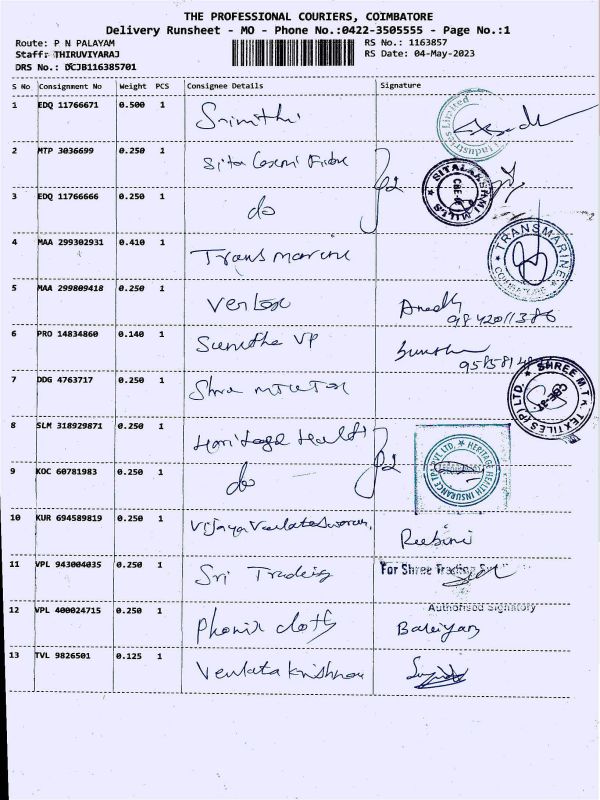 THE PROFESSIONAL COURIERS, COIMBATORE
Delivery Runsheet - MO - Phone No.:0422-3505555 - Page No.:1
Route: P N PALAYAM RS No.: 1163857
Staff: THIRUVIYARAJ RS Date: 04-May-2023
DRS No.: DCJB116385701
S No Consignment No Weight PCS Consignee Details Signature
1 EDQ 11766671 0.500 1 Srinithi
2 MTP 3036699 0.250 1 Sita Laxmi SITALAKSHMI MILLS
3 EDQ 11766666 0.250 1 do
4 MAA 299302931 0.410 1 Transmarine TRANSMARINE COIMBATORE
5 MAA 299809418 0.250 1
9842011386
6 PRO 14834860 0.140 1 Sunitha VP
7 DDG 4763717 0.250 1 SHREE M.T.K. TEXTILES (P) LTD.
8 SLM 318929871 0.250 1 Heritage Health
HERITAGE HEALTH INSURANCE TPA PVT. LTD.
9 KOC 60781983 0.250 1 do
10 KUR 694589819 0.250 1 Vijaya Venkateswaran,
11 VPL 943004035 0.250 1 Sri Trading For Shree Trading
Authorised Signatory
12 VPL 400024715 0.250 1 Phonix cloth
13 TVL 9826501 0.125 1 Venkata Krishnan